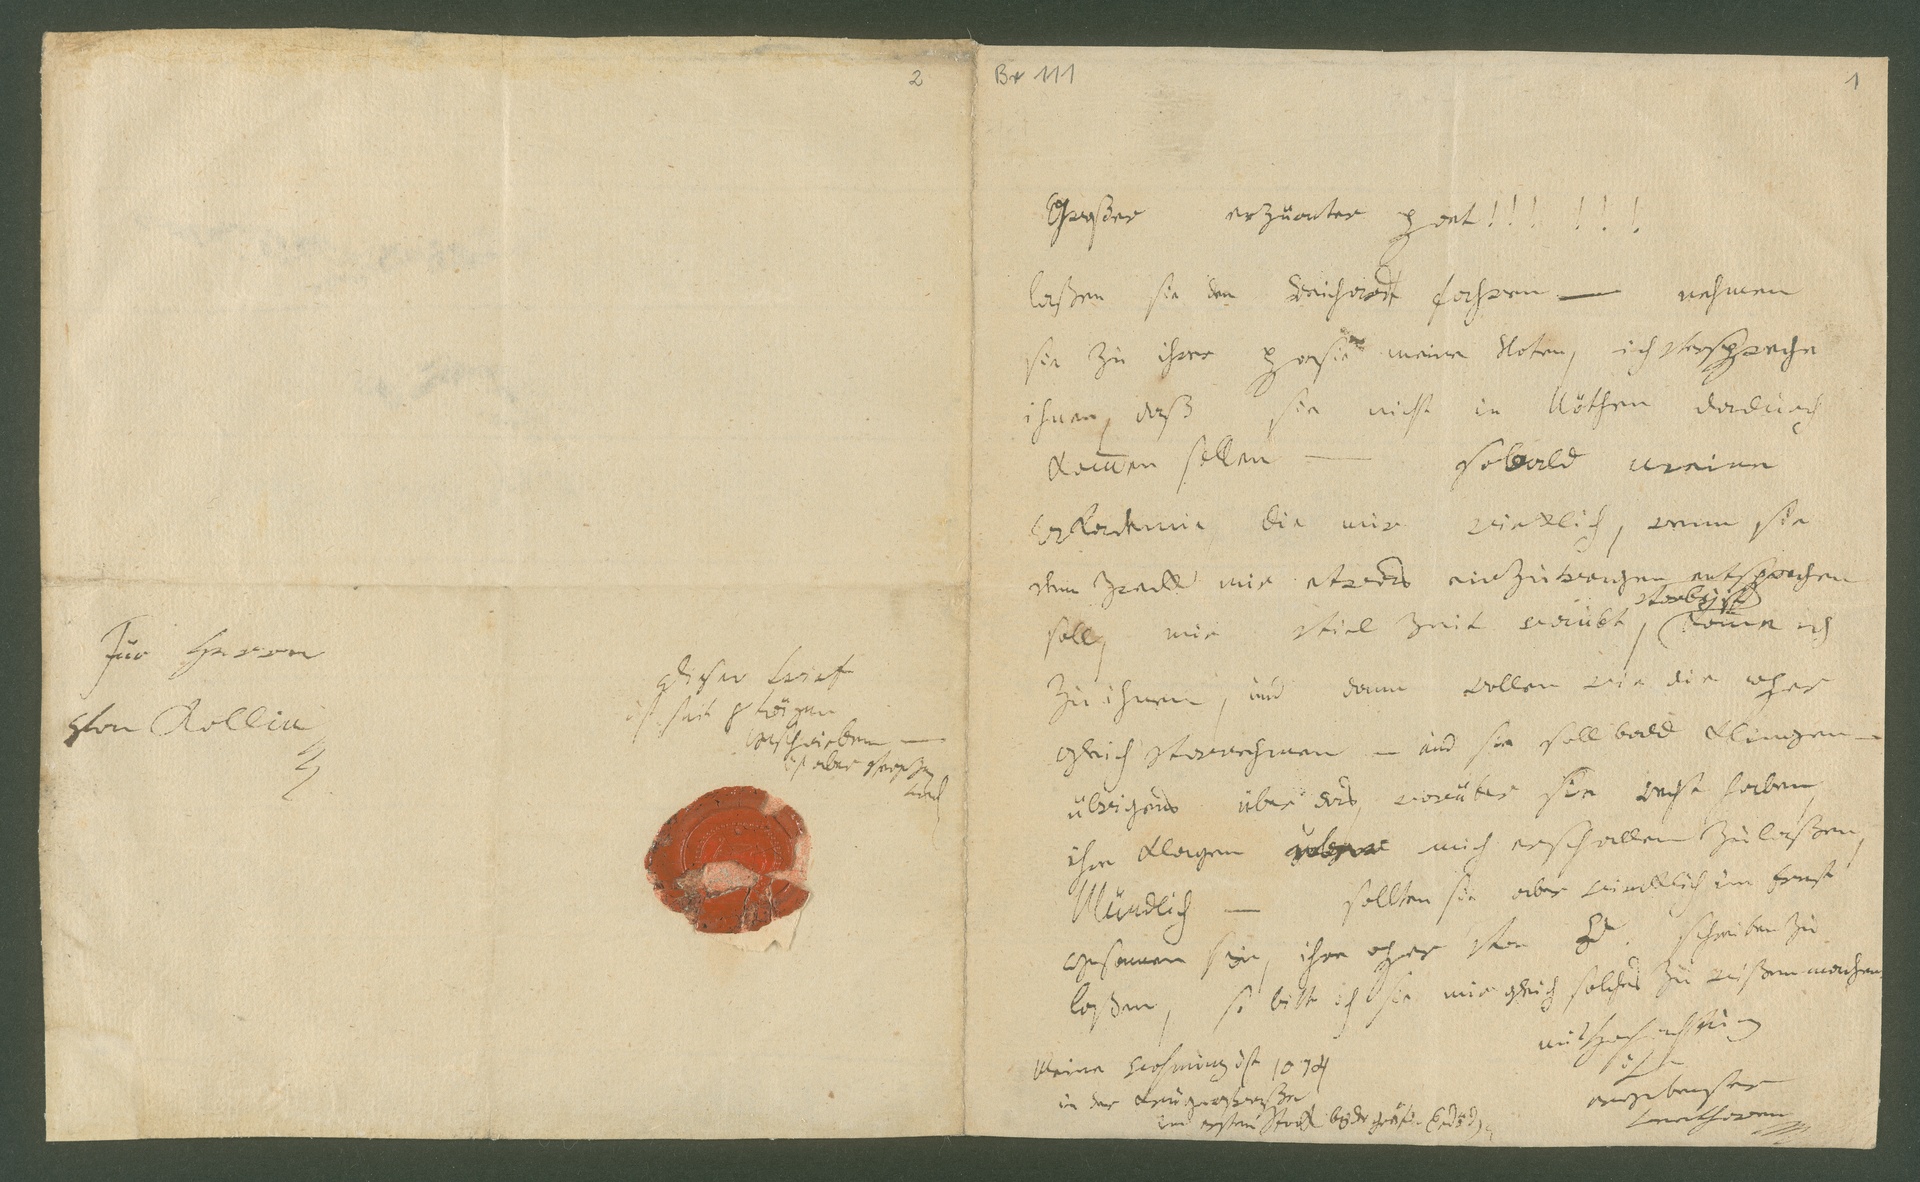 2
Für Herrn
Von Kollin
dieser brief
ist seit 8 tägen
geschrieben —
ist aber verlegt
word
Br 111
1
Großer erzürnter poet!!! !!!
laßen sie den Reichardt fahren — nehmen
sie zu ihrer poesie meine Noten, ich verspreche
ihnen, daß sie nicht in Nöthen dadurch
kommen sollen — sobald meine
Akademie die mir wirklich, wenn sie
dem Zweck mir etwas einzutragen entsprechen
soll, mir viel Zeit raubt, vorbey ist
komme ich
zu ihnen, und dann wollen wir die oper
gleich vornehmen — und sie soll bald klingen —
übrigens über das, worüber sie recht haben
ihre Klagen über mich erschallen zu laßen,
Mündlich — sollten sie aber wirklich im Ernst
gesonnen sein, ihre oper von R. schreiben zu
laßen, so bitte ich sie mir gleich solches zu wißen machen
mit Hochachtung
ihr
ergebenster
Beethowen
Meine Wohnung ist 1074
in der Krugerstraße
im ersten Stock bey der gräfin Erdödy